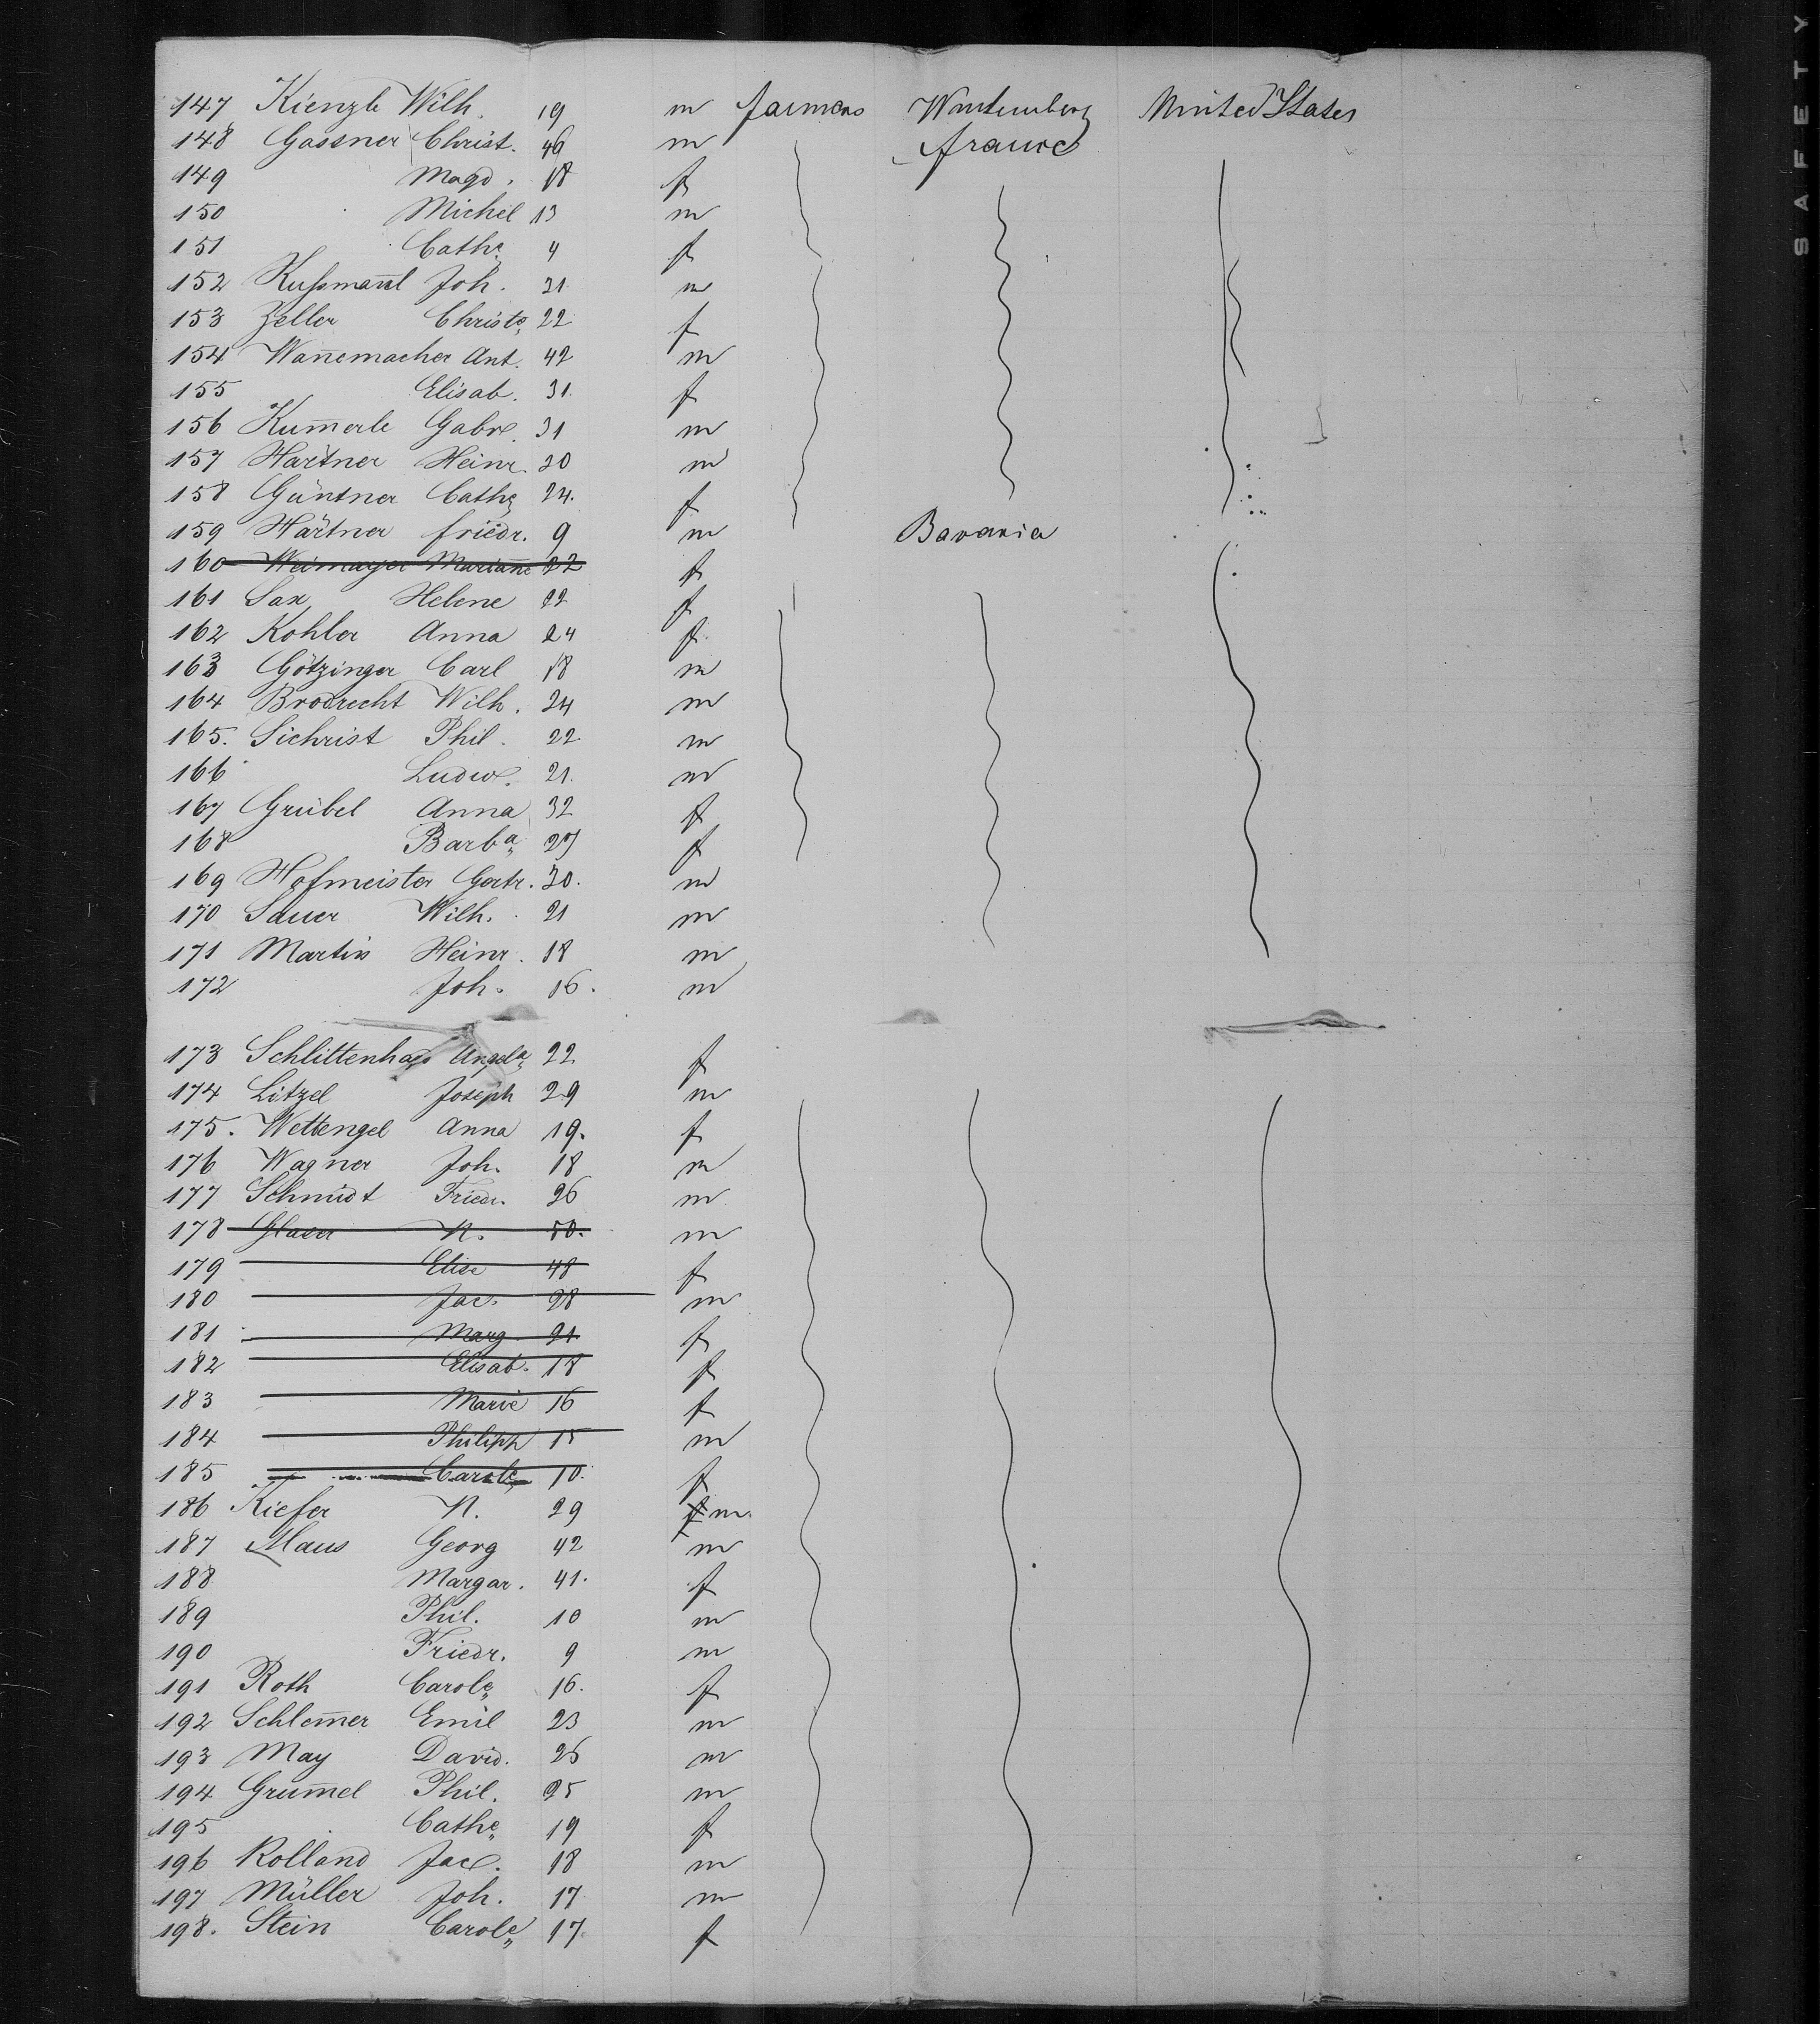 SAFETY
147 Kienzle Wilh. 19 m farmers Wurtemberg United States
148 Gassner Christ. 46 m France
149 Magd. 18 f
150 Michel 13 m
151 Cathe 4 f
152 Kußmaul Joh. 21 m
153 Zeller Christe 22 f
154 Wan̅emacher Ant. 42 m
155 Elisab. 31 f
156 Kum̅erle Gabr. 31 m
157 Hartner Heinr. 20 m
158 Güntner Cathe 24. f
159 Hartner Friedr. 9 m Bavaria
160 Weimayer Marian̅e 22 f
161 Sax Helene 22 f
162 Kohler Anna 24 f
163 Götzinger Carl 18 m
164 Brodrecht Wilh. 24 m
165. Sichrist Phil. 22 m
166 Ludw. 21. m
167 Grübel Anna 32 f
168 Barba 27 f
169 Hofmeister Gertr. 30. m
170 Sauer Wilh. 21 m
171 Martin Heinr. 18 m
172 Joh. 16. m
173 Angela 22 f
174 Litzel Joseph 29 m
175. Wettengel Anna 19. f
176 Wagner Joh. 18 m
177 Schmidt Friedr. 26 m
178 Glaser N. 50. m
179 Elise 48 f
180 Jac. 28 m
181 Marg. 21 f
182 Elisab. 18 f
183 Marie 16 f
184 Philipp 15 m
185 Carole 10. f
186 Kiefer N. 29 f m
187 Maus Georg 42 m
188 Margar. 41. f
189 Phil. 10 m
190 Friedr. 9 m
191 Roth Carole 16. f
192 Schlem̅er Emil 23 m
193 May David. 26 m
194 Grum̅el Phil. 25 m
195 Cathe 19 f
196 Rolland Jac. 18 m
197 Müller Joh. 17 m
198. Stein Carole 17. f